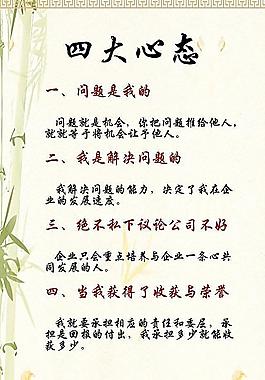 四大心态
一、问题是我的
问题就是机会，你把问题推给他人，
就就等于将机会让予他人。
二、我是解决问题的
我解决问题的能力，决定了我在企
业的发展速度。
三、绝不私下议论公司不好
企业只会重点培养与企业一条心共
同发展的人。
四、当我获得了收获与荣誉
我就要承担相应的责任和委屈，承
担是回报的付出，我承担多少就能收
获多少。